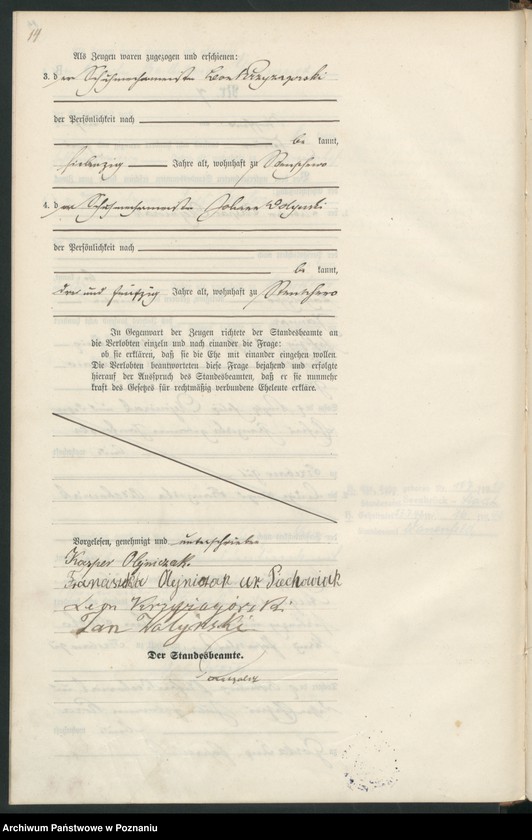 14
Als Zeugen waren zugezogen und erschienen:
3. der Schuhmachermeister Leon Krzyzagorski
der Persönlichkeit nach
be kannt,
siebenzig Jahre alt, wohnhaft zu Stenschewo
4. der Schuhmachermeister Johann Wolynski
der Persönlichkeit nach
be kannt,
drei und fünfzig Jahre alt, wohnhaft zu Stenschewo
In Gegenwart der Zeugen richtete der Standesbeamte an
die Verlobten einzeln und nach einander die Frage:
ob sie erklären, daß sie die Ehe mit einander eingehen wollen.
Die Verlobten beantworteten diese Frage bejahend und erfolgte
hierauf der Ausspruch des Standesbeamten, daß er sie nunmehr
kraft des Gesetzes für rechtmäßig verbundene Eheleute erkläre.
Vorgelesen, genehmigt und unterschrieben
Kazper Olejniczak.
Franciszka Olejniczak ur. Piechowiak
Leon Krzyżagórski
Jan Wolyński
Der Standesbeamte.
Archiwum Państwowe w Poznaniu